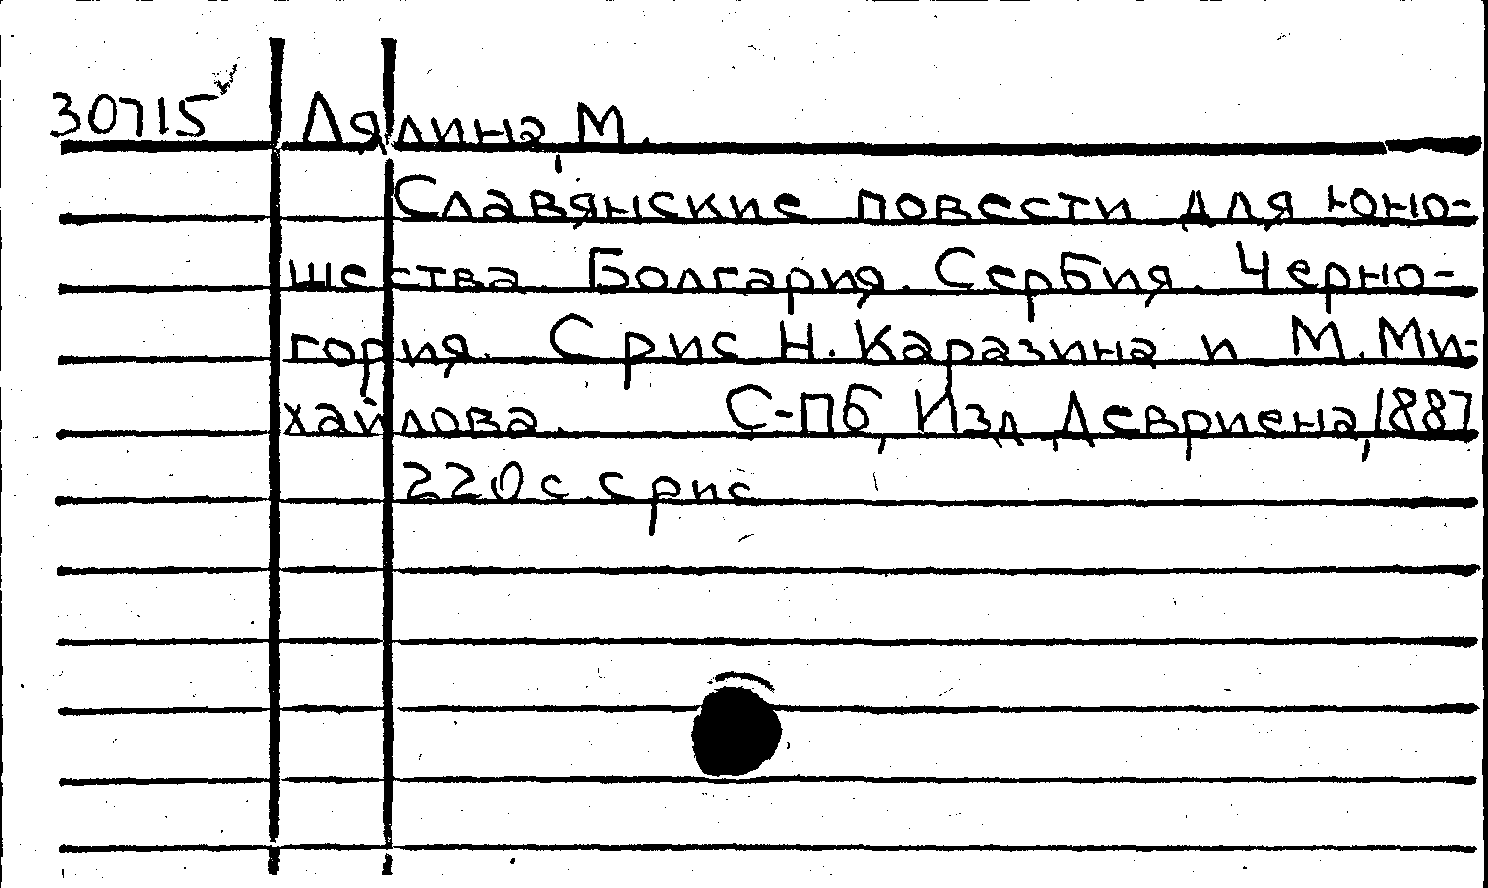 30715 Лялина, М.
Славянские повести для юно-
шества. Болгария. Сербия. Черно-
гория. С рис Н. Каразина и М. Ми-
хайлова. С-Пб, Изд, Девриена, 1887
220 с. с рис